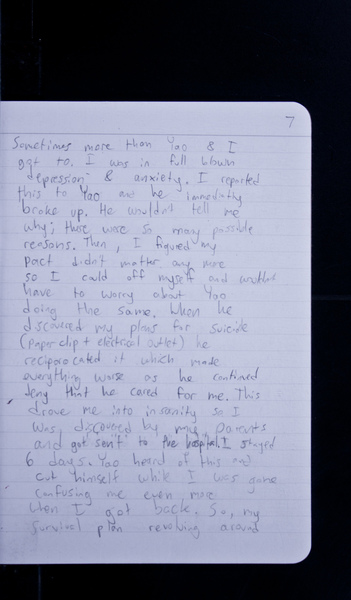 7
Sometimes more than Yao & I
got to. I was in full blown
depression & anxiety. I reported
this to Yao and he immediatly
broke up. He wouldn't tell me
why; there were so many possible
reasons. Then, I figured my
pact didn't matter any more
so I could off myself and wouldn't
have to worry about Yao
doing the same. When he
discovered my plans for suicide
(paper clip + electrical outlet) he
reciporocated it which made
everything worse as he continued
deny that he cared for me. This
drove me into insanity so I
was discovered by my parents
and got sent to the hospital. I stayed
6 days. Yao heard of this and
cut himself while I was gone
confusing me even more
when I got back. So, my
survival plan revolving around